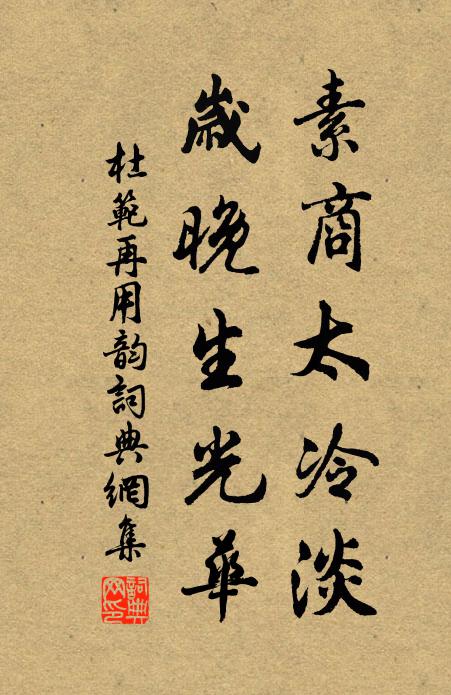 素商太冷淡
歲晚生光華
杜範再用韵詞典網集
詞典网印